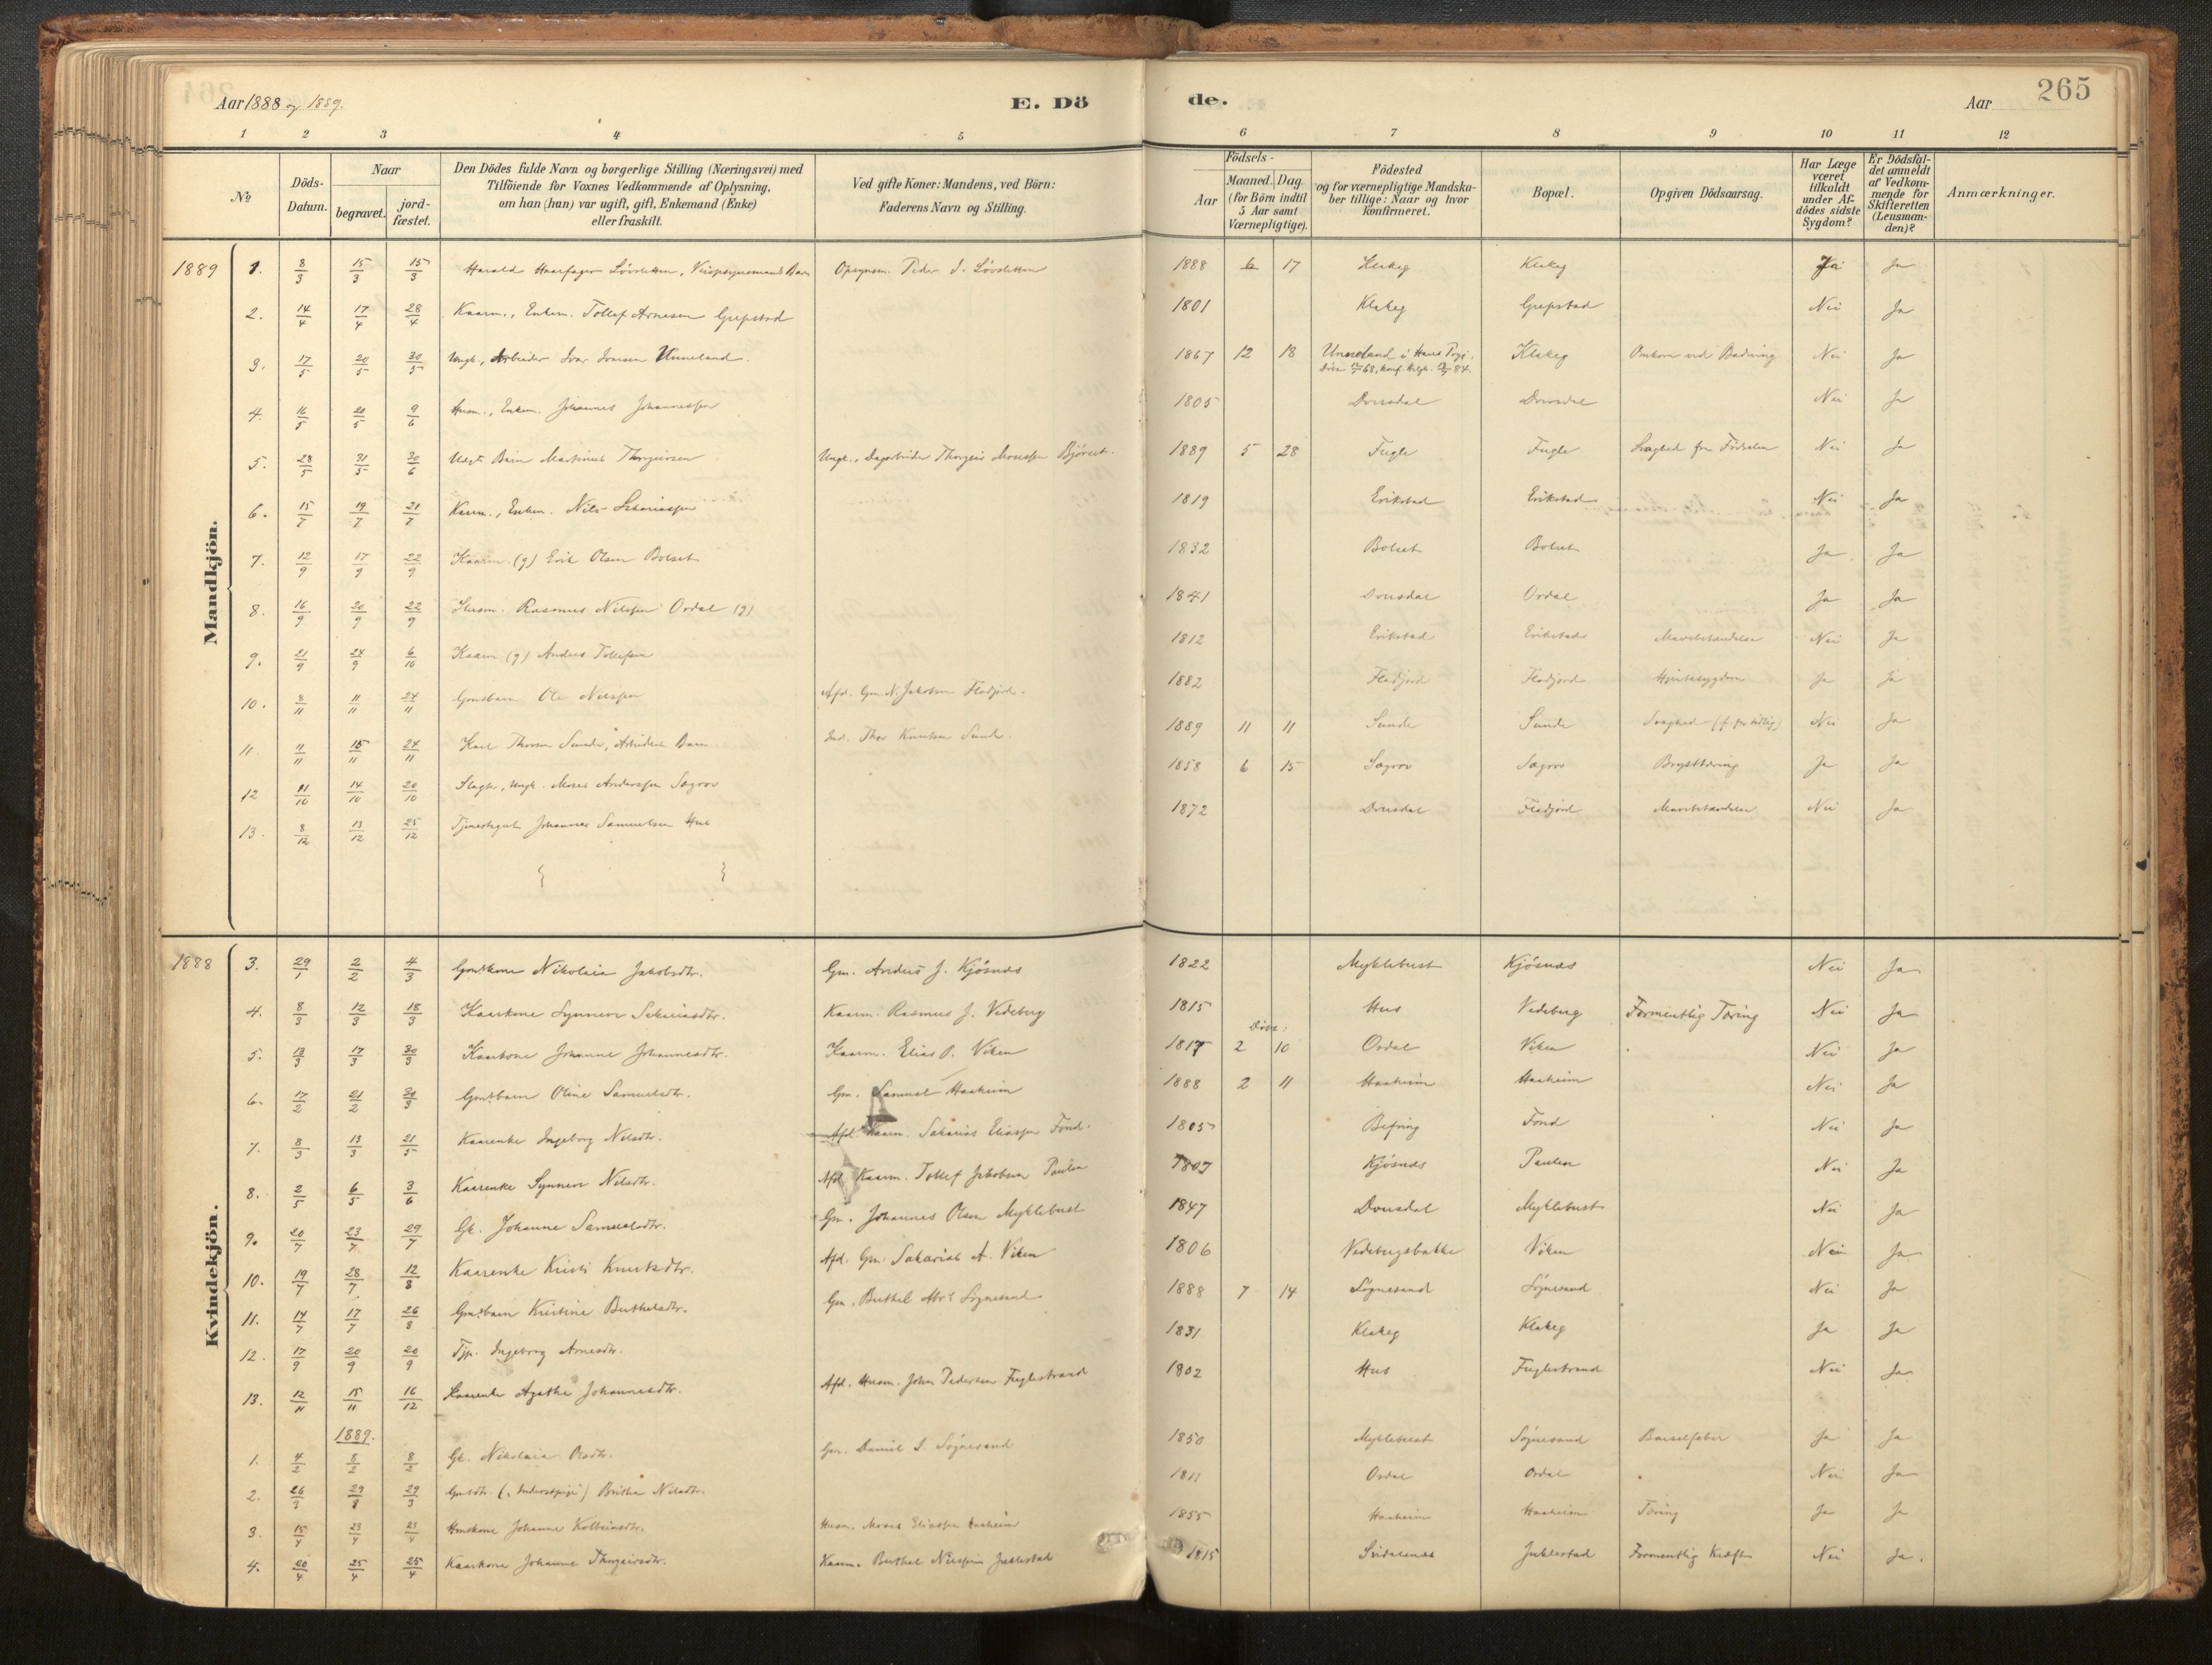 Aar 1888 og 1889.
E. Dö
de.
Aar
265
1 2 3 4 5 6 7 8 9 10 11 12
No.
Döds-Datum.
Naar
begravet.
jord-fæstet.
Den Dödes fulde Navn og borgerlige Stilling (Næringsvei) med
Tilföiende for Voxnes Vedkommende af Oplysning,
om han (hun) var ugift, gift, Enkemand (Enke)
eller fraskilt.
Ved gifte Koner: Mandens, ved Börn:
Faderens Navn og Stilling.
Födsels-
Aar
Maaned. Dag
(for Börn indtil
5 Aar samt
Værnepligtige).
Födested
og for værnepligtige Mandska-
ber tillige: Naar og hvor
konfirmeret.
Bopæl.
Opgiven Dödsaarsag.
Har Læge
været
tilkaldt
under Af-
dödes sidste
Sygdom?
Er Dödsfal-
det anmeldt
af Vedkom-
mende for
Skifteretten
(Lensman-
den)?
Anmærkninger.
Mandkjön.
1889 1. 8/3 15/3 15/3 Harald Haarfager Løvsletten, Barn Opsynsm. Peder J. Løvsletten 1888 6 17 Klakeg Klakeg Ja Ja
2. 14/4 17/4 28/4 Kaarm., Enkem. Tollef Arnesen Grepstad 1801 Klakeg Grepstad Nei Ja
3. 17/5 20/5 30/5 Ungk., Arbeider Ivar Ivarsen Unneland. 1867 12 18 Unneland i Haus Klakeg Omkom ved Badning Nei Ja
4. 16/5 20/5 9/6 Husm., Enkem. Johannes Johannessen 1805 Dvergsdal Nei Ja
5. 28/5 31/5 30/6 Uægte Barn Martinus Thorgeirsen Ungk., Dagarbeider Thorgeir Monssen Bjørset. 1889 5 28 Fugle Fugle Svaghed fra Fødselen Nei Ja
6. 15/7 19/7 21/7 Kaarm., Enkem. Nils Sakariassen 1819 Erikstad Erikstad Nei Ja
7. 12/9 17/9 22/9 Kaarm. (g) Erik Olsen Bolset 1832 Bolset Bolset Ja Ja
8. 16/9 20/9 22/9 Husm. Rasmus Nilssen Ordal (g) 1841 Ordal Ja Ja
9. 21/9 24/9 6/10 Kaarm (g) Anders Tollefsen 1812 Erikstad Erikstad Nei Ja
10. 8/11 11/11 24/11 Gmdbarn Ole Nilssen Afd. Gm. N. Jakobsen Fladjord. 1882 Fladjord Fladjord Ja Ja
11. 11/11 15/11 24/11 Karl Thorsen Sunde, Arbeiders Barn Ind. Thor Knutsen Sunde. 1889 11 11 Sunde Sunde Svaghed (f. for tidlig) Nei Ja
12 11/10 14/10 20/10 Slagter, Ungk. Moses Anderssen Sægrov 1858 6 15 Sægrov Sægrov Brysttæring Ja Ja
13. 8/12 13/12 25/12 Tjenestegut Johannes Samuelsen Hus 1872 Fladjord Nei Ja
Kvindekjön.
1888 3. 29/1 2/2 4/3 Gmdkone Nikolaia Jakobsdtr. Gm. Anders J. Kjøsnæs 1822 Myklebust Kjøsnæs Nei Ja
4. 8/3 12/3 18/3 Kaarkone Synneve Sakariasdtr. Kaarm. Rasmus J. Vedeberg 1815 Hus Vedeberg Formentlig Tæring Nei Ja
5. 13/3 17/3 30/3 Kaarkone Johanne Johannesdtr. Kaarm. Elias P. Viken 1817 2 10 Ordal Viken Nei Ja
6. 17/2 21/2 30/3 Gmdbarn Oline Samuelsdtr. Gm. Samuel Haaheim 1888 2 11 Haaheim Haaheim Nei Ja
7. 8/3 13/3 21/5 Kaarenke Ingeborg Nilsdtr. Afd. Kaarm. Sakarias Eliassen Fond. 1805 Befring Fond Nei Ja
8. 2/5 6/5 3/6 Kaarenke Synneve Nilsdtr. Afd. Kaarm. Tollef Jakobsen Paulen 1807 Kjøsnæs Paulen Nei Ja
9. 20/7 23/7 29/7 Gk. Johanne Samuelsdtr. Gm. Johannes Olsen Myklebust 1847 Myklebust Nei Ja
10. 19/7 28/7 12/8 Kaarenke Kristi Knutsdtr. Afd. Gm. Sakarias A. Viken 1806 Vedebergsbakke Viken Nei Ja
11. 14/7 17/7 26/8 Gmdbarn Kristine Berthelsdtr. Gm. Berthel Søgnesand 1888 7 14 Søgnesand Søgnesand Nei Ja
12. 17/9 20/9 20/9 Tjp. Ingeborg Arnesdtr. 1831 Klakeg Klakeg Ja Ja
13. 12/11 15/11 16/12 Kaarenke Agathe Johannesdtr. Afd. Husm. John Pedersen Fuglestrand 1802 Hus Fuglestrand Nei Ja
1889.
1. 4/2 8/2 8/2 Gk. Nikolaia Olsdtr. Gm. Daniel J. Søgnesand 1850 Myklebust Søgnesand Barselfeber Ja Ja
2. 26/3 29/3 29/3 Gmdsdtr. Brithe Nilsdtr. 1811 Ordal Ordal Nei Ja
3. 15/4 23/4 23/4 Hmskone Johanne Kolbeinsdtr. Husm. Moses Eliassen Haaheim 1855 Haaheim Haaheim Tæring Ja Ja
4. 20/4 25/4 25/4 Kaarkone Johanne Thorgeirsdtr. Kaarm. Berthel Nilssen Juklestad 1815 Juklestad Formentlig Kræft Nei Ja.